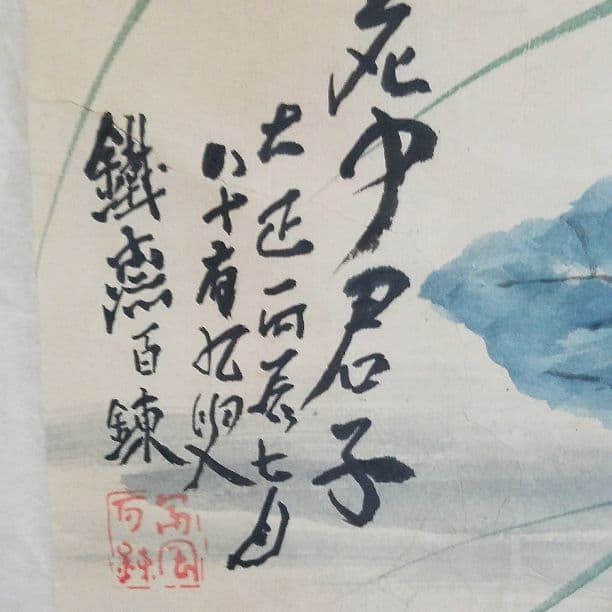 花中君子
大正丙辰七月
八十有 叟
鐵斎百錬
富岡
百錬